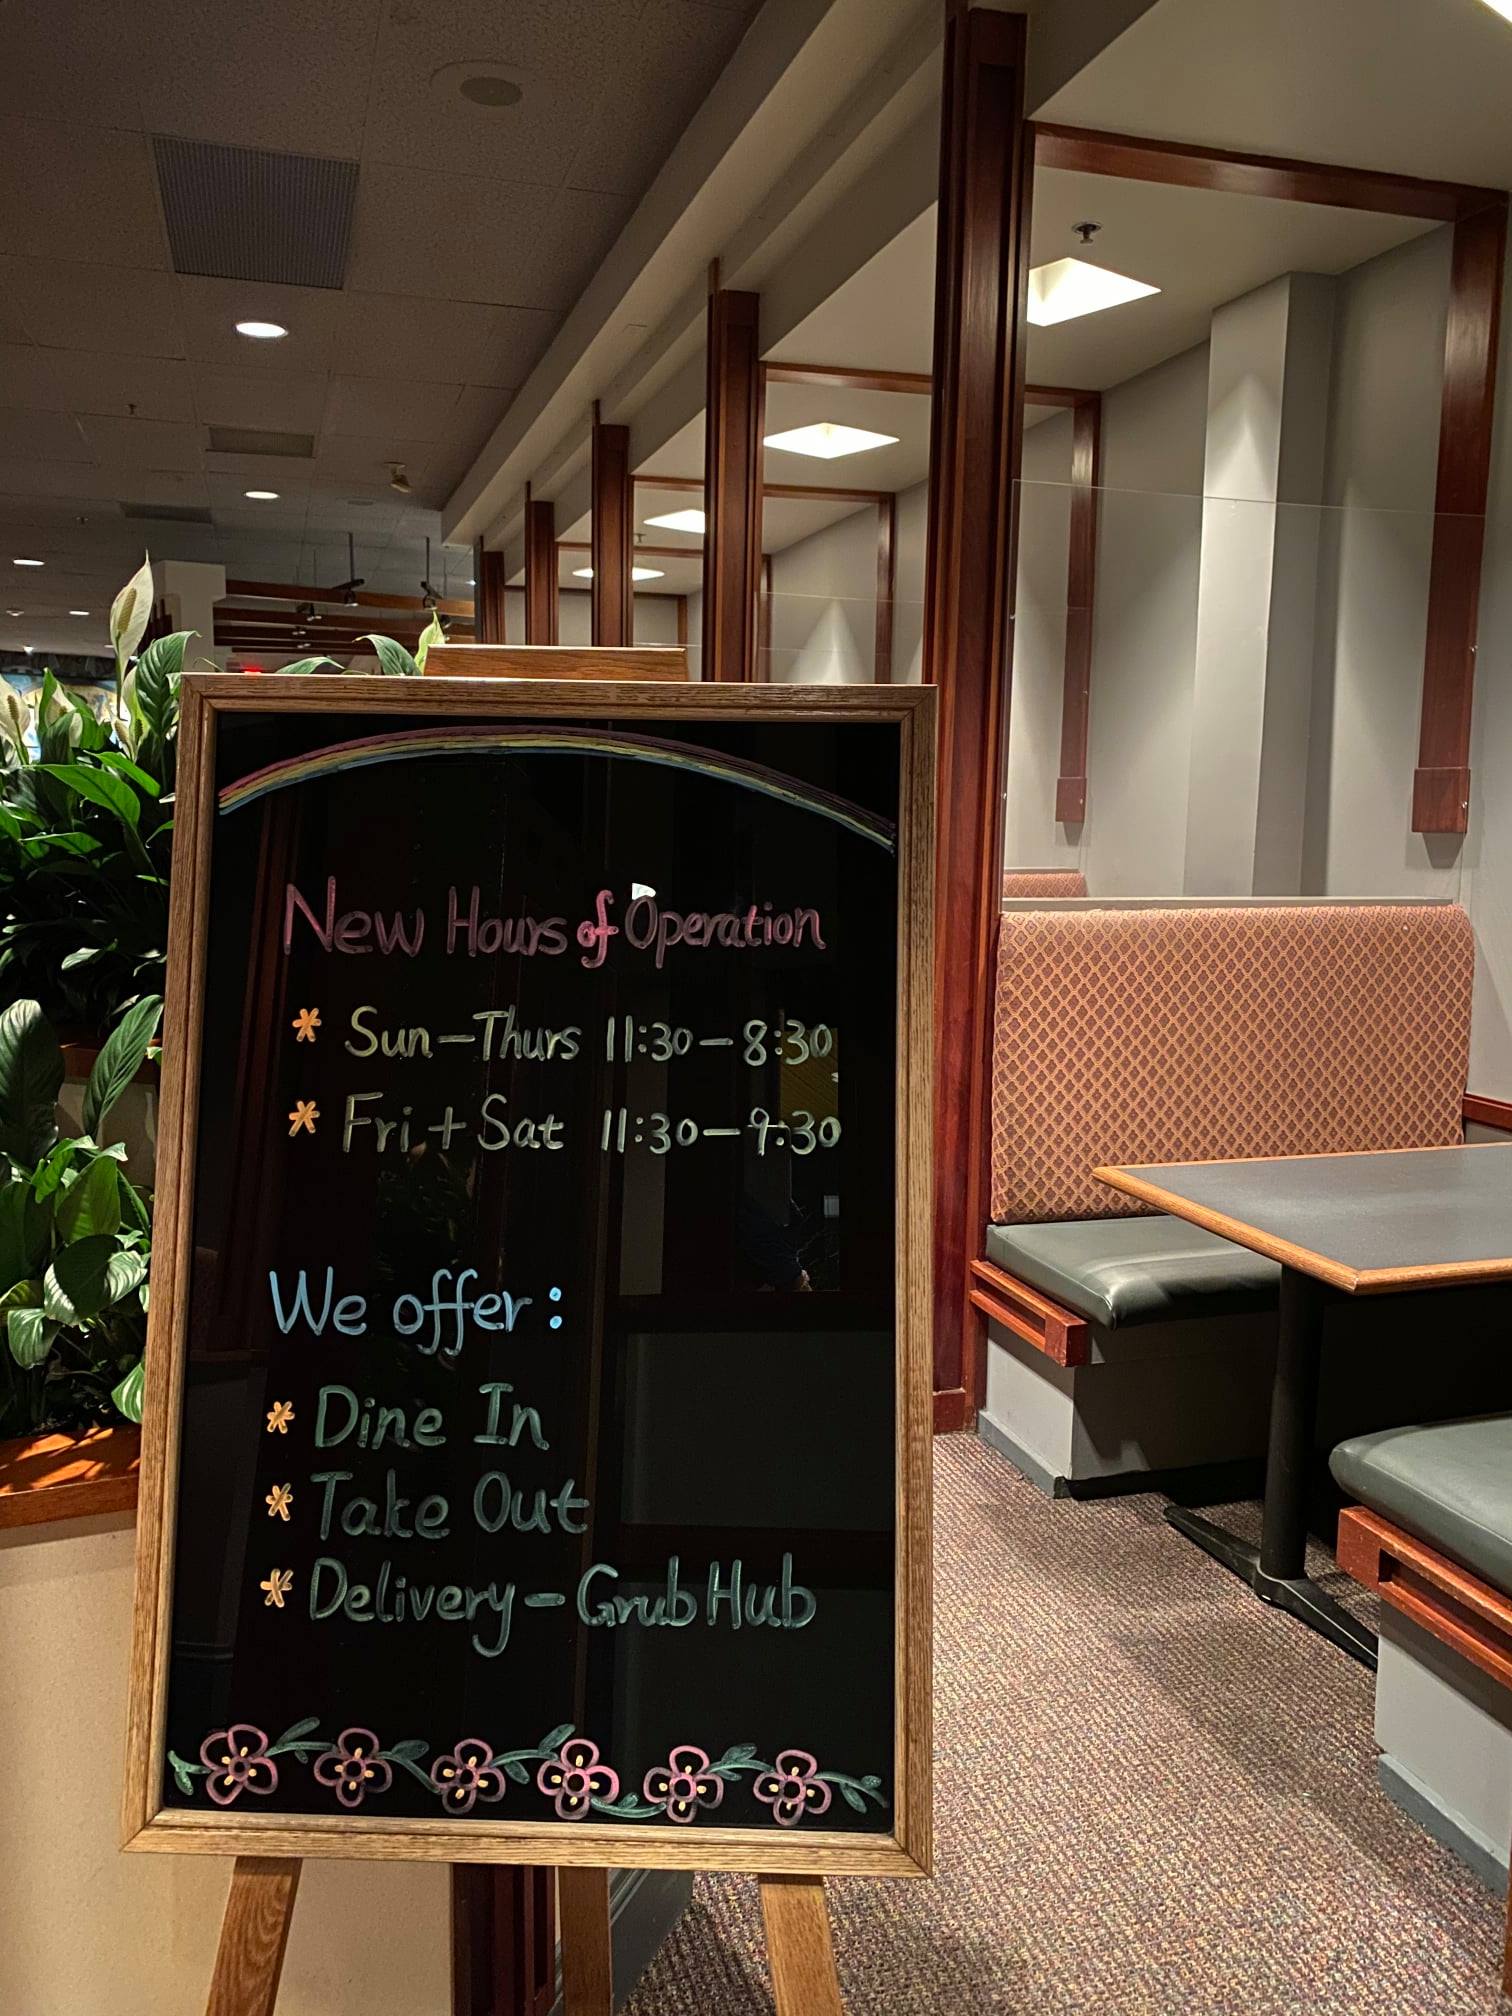 New Hours of Operation
* Sun-Thurs 11:30-8:30
* Fri + Sat 11:30-9:30
We offer:
* Dine In
* Take Out
* Delivery-GrubHub